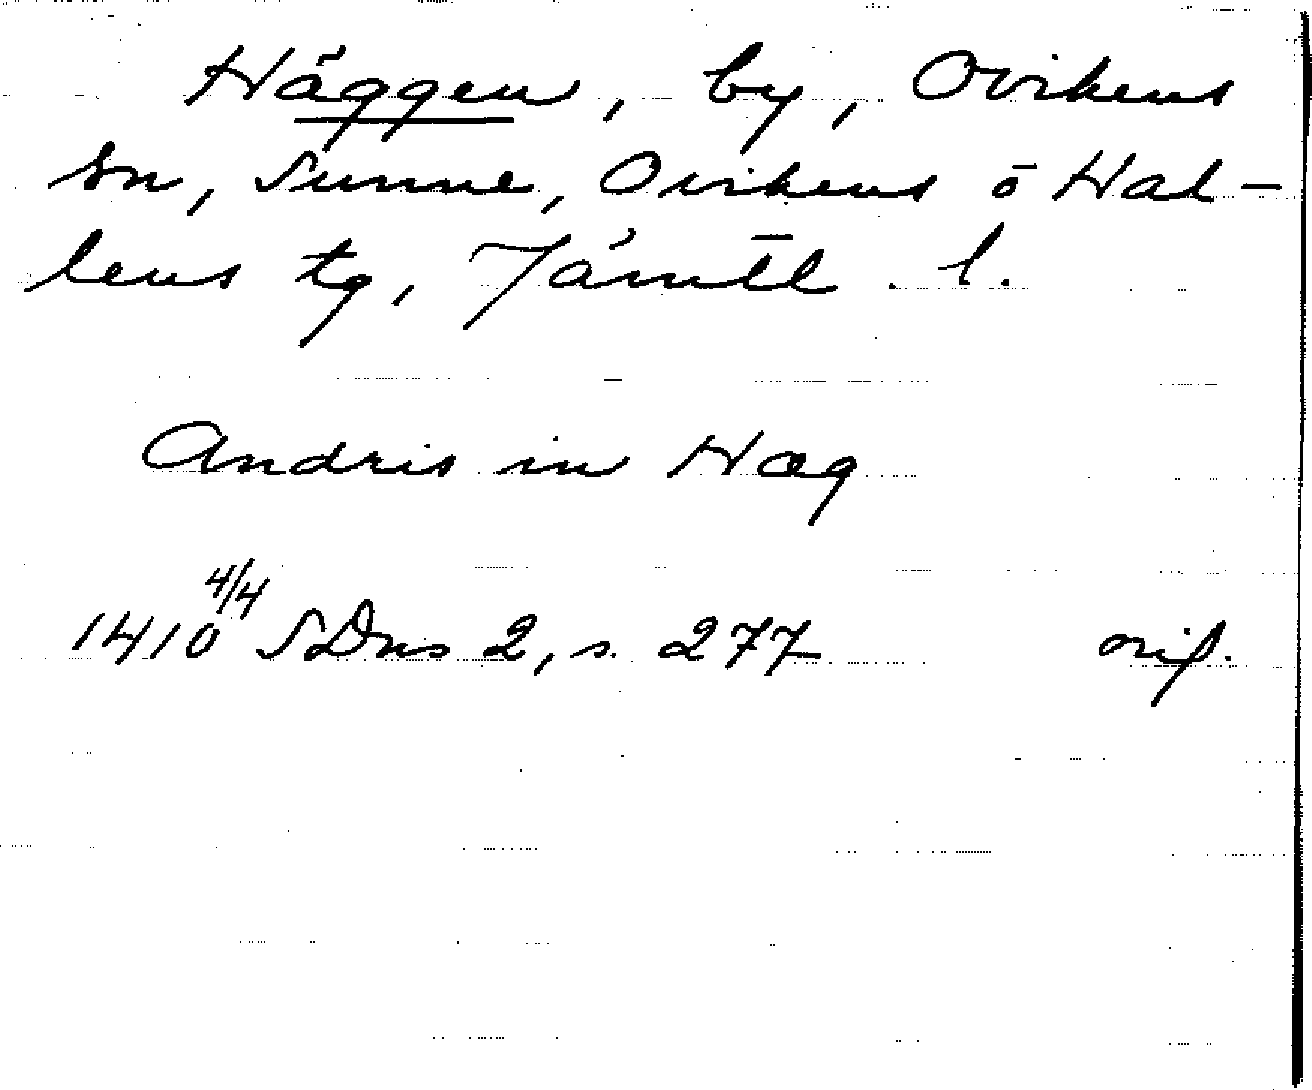 Häggen, by, Ovikens
sn, Sunne, Ovikens o Hal-
lens tg, Jämtl. l.
Andris in Hæg
1410 4/4 SDns 2, s. 277 orig.